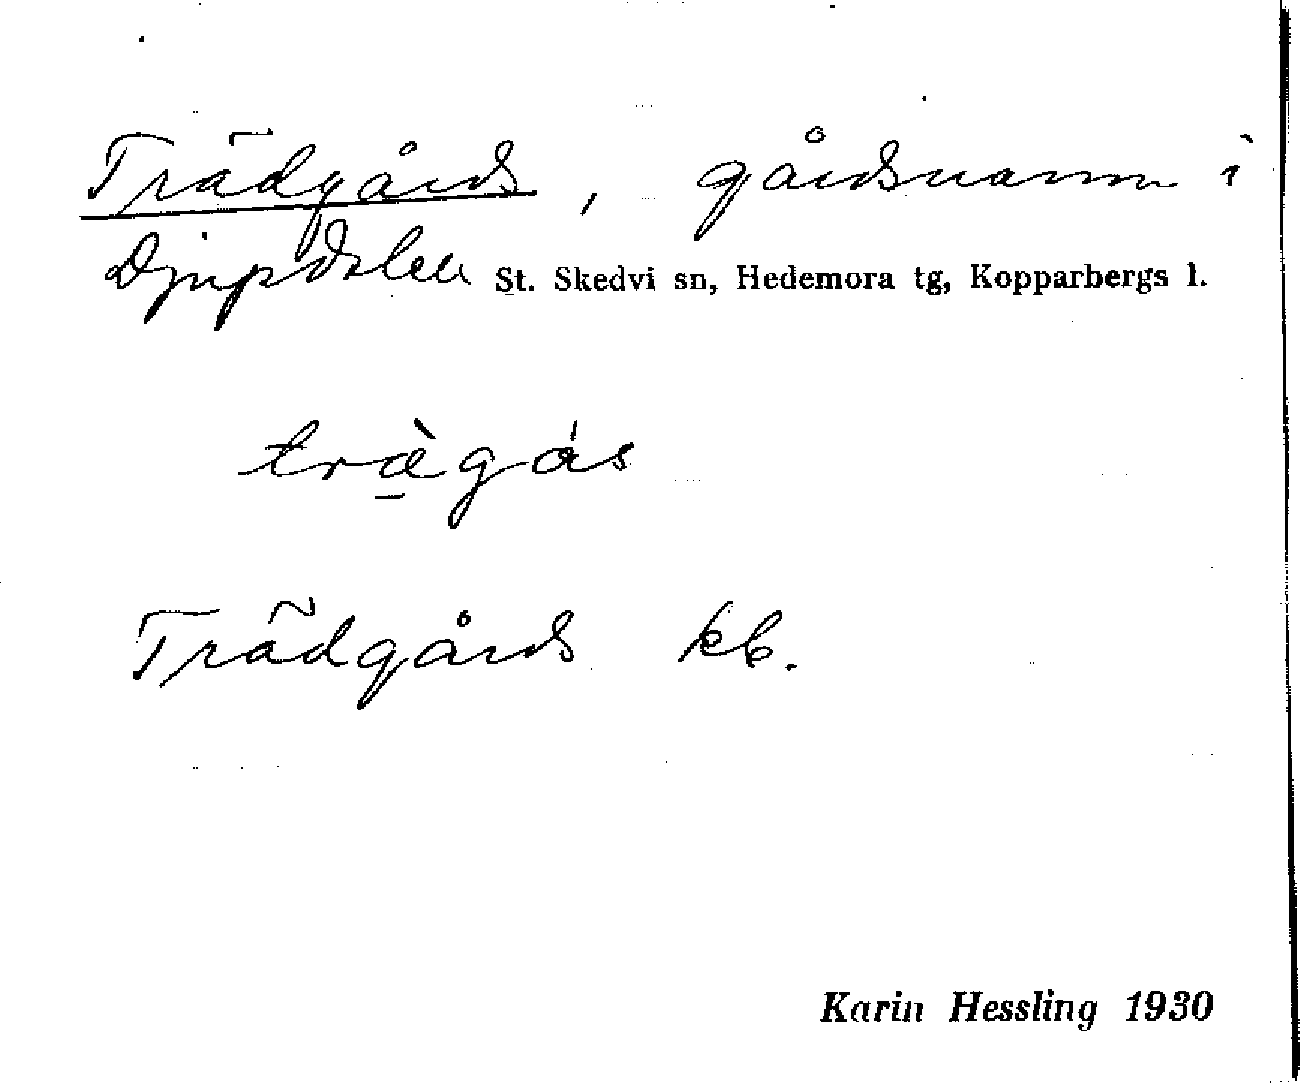 Trädgårds, gårdsnamn i
Djupdalen St. Skedvi sn, Hedemora tg, Kopparbergs l.
træ̱̀gás
Trädgårds kb.
Karin Hessling 1930